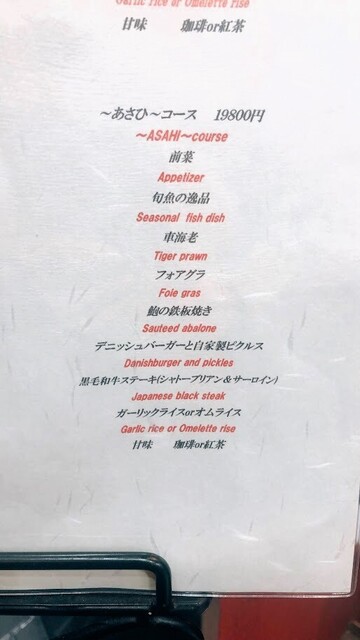 Garlic rice or Omelette rise
甘味　　珈琲or紅茶
～あさひ～コース　19800円
～ASAHI～course
前菜
Appetizer
旬魚の逸品
Seasonal fish dish
車海老
Tiger prawn
フォアグラ
Foie gras
鮑の鉄板焼き
Sauteed abalone
デニッシュバーガーと自家製ピクルス
Danishburger and pickles
黒毛和牛ステーキ(シャトーブリアン＆サーロイン)
Japanese black steak
ガーリックライスorオムライス
Garlic rice or Omelette rise
甘味　　珈琲or紅茶